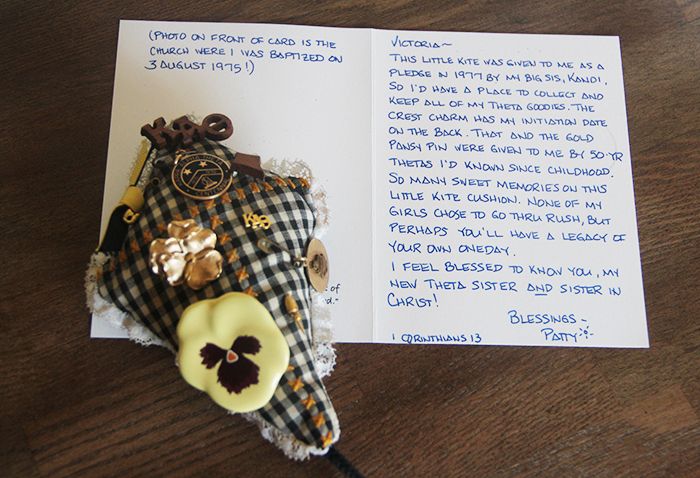 (PHOTO ON FRONT OF CARD IS THE
CHURCH WERE I WAS BAPTIZED ON
3 AUGUST 1975!)
of
d."
VICTORIA~
THIS LITTLE KITE WAS GIVEN TO ME AS A
PLEDGE IN 1977 BY MY BIG SIS, KANDI.
SO I'D HAVE A PLACE TO COLLECT AND
KEEP ALL OF MY THETA GOODIES. THE
CREST CHARM HAS MY INITIATION DATE
ON THE BACK. THAT AND THE GOLD
PANSY PIN WERE GIVEN TO ME BY 50-YR
THETAS I'D KNOWN SINCE CHILDHOOD.
SO MANY SWEET MEMORIES ON THIS
LITTLE KITE CUSHION. NONE OF MY
GIRLS CHOSE TO GO THRU RUSH, BUT
PERHAPS YOU'LL HAVE A LEGACY OF
YOUR OWN ONEDAY.
I FEEL BLESSED TO KNOW YOU, MY
NEW THETA SISTER AND SISTER IN
CHRIST!
BLESSINGS -
PATTY
1 CORINTHIANS 13
ΚΑΘ
ΚΑΘ